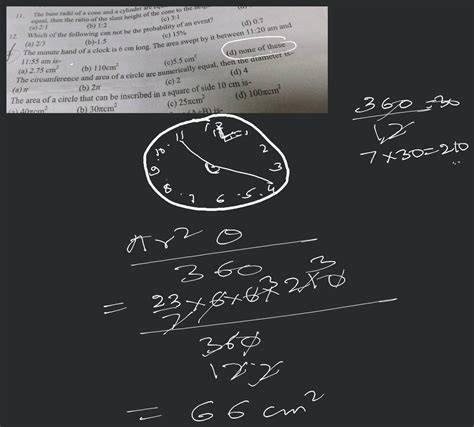 11. The base radii of a cone and a cylinder are
equal, then the ratio of the slant height of the cone to the
(a) 2:1 (b) 1:2 (c) 3:1
12. Which of the following can not be the probability of an event?
(a) 2/3 (b)-1.5 (c) 15% (d) 0.7
The minute hand of a clock is 6 cm long. The area swept by it between 11:20 am and
11:55 am is-
(a) 2.75 cm² (b) 110cm² (c)5.5 cm² (d) none of these
The circumference and area of a circle are numerically equal, then the diameter is-
(a)π (b) 2π (c) 2 (d) 4
The area of a circle that can be inscribed in a square of side 10 cm is-
(a) 40πcm² (b) 30πcm² (c) 25πcm² (d) 100πcm²
360 = 30
12
7 × 30 = 210
11 1 2
10 2
9 3
8 4
7 6 5
πr² θ
360
= 22 × 6 × 6 × 210 3
7
360
12 2
= 66 cm²